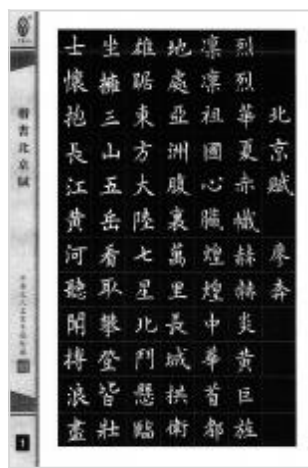 北京賦 廖奔
烈烈華夏赤幟赫赫炎黃巨旌
凜凜祖國心臟煌煌中華首都
地處亞洲腹裏萬里長城拱衛
雄踞東方大陸七星北鬥懸臨
坐擁三山五岳看取攀登皆壯
士懷抱長江黃河聽聞搏浪盡
楷書北京賦
1